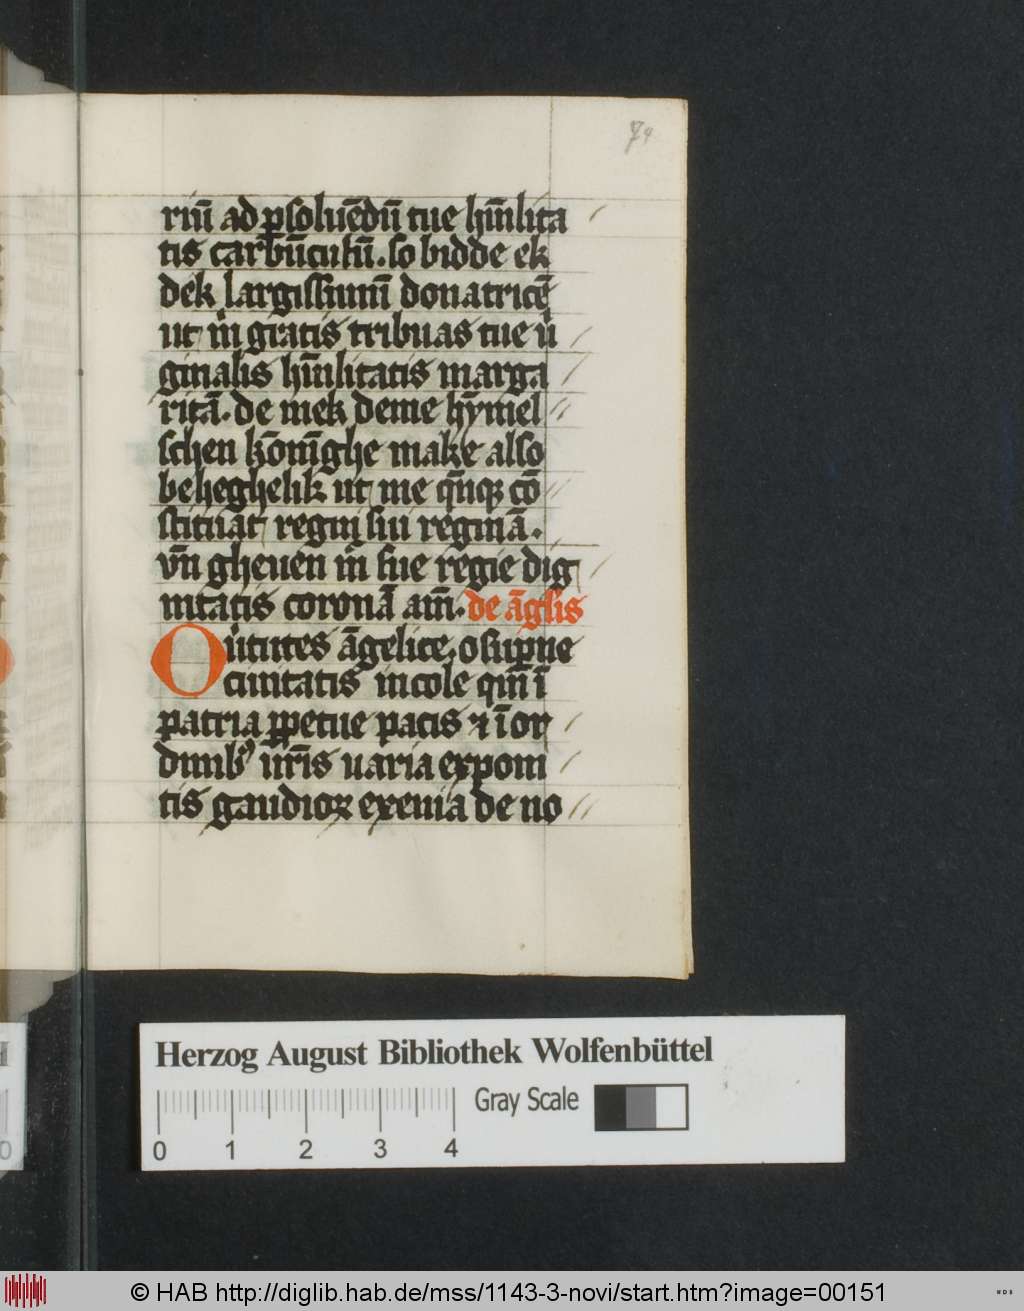 74
riū ad ꝑsoluēdū tue hūilita
tis carbūculū. so bidde ek
dek largissimū donatricē
ut m̄ gratis tribuas tue ů
ginalis hūilitatis marga
ritā. de mek deme hymel
schen kōnīghe make also
beheghelik ut me q̄nqꝫ cō
stituat regni sui reginā.
vn̄ gheuen m̄ sue regie dig
nitatis coronā am̄. de āglis
O ůtutes āgelice. o suꝑne
ciuitatis incole qm̄ ī
patria ꝑpetue pacis ⁊ ī or
dinibꝫ ur̄is uaria exponi
tis gaudioꝝ exenia de no
Herzog August Bibliothek Wolfenbüttel
Gray Scale
0 1 2 3 4
© HAB http://diglib.hab.de/mss/1143-3-novi/start.htm?image=00151